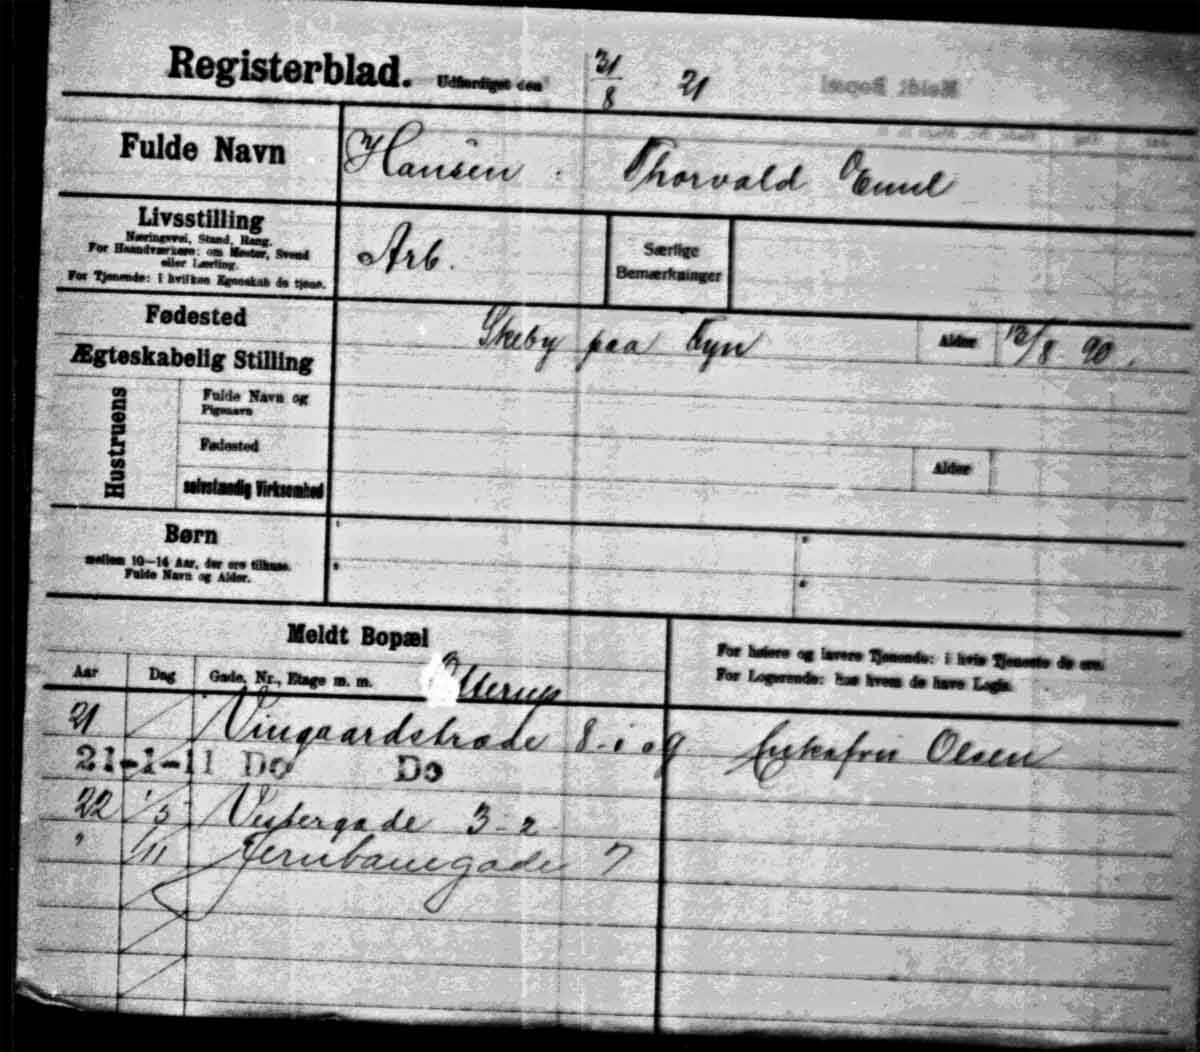 Registerblad. Udfærdiget den 31/8 21
Fulde Navn Hansen. Thorvald Emil
Livsstilling
Næringsvei, Stand, Rang.
For Haandværkere: om Mester, Svend
eller Lærling.
For Tjenende: i hvilken Egenskab de tjene.
Arb.
Særlige
Bemærkninger
Fødested Skeby paa Fyn Alder 12/8 90.
Ægteskabelig Stilling
Hustruens
Fulde Navn og
Pigenavn
Fødested
Alder
selvstændig Virksomhed
Børn
mellem 10—14 Aar, der ere tilhuse.
Fulde Navn og Alder.
Meldt Bopæl
For høiere og lavere Tjenende: i hvis Tjeneste de ere.
For Logerende: hos hvem de have Logis.
Aar Dag Gade, Nr., Etage m. m. Otterup
21 Vingaardstræde 8 - i og Enkefru Olsen
21-1-11 Do Do
22 1/5 Vestergade 3 - 2
" 1/11 Jernbanegade 7